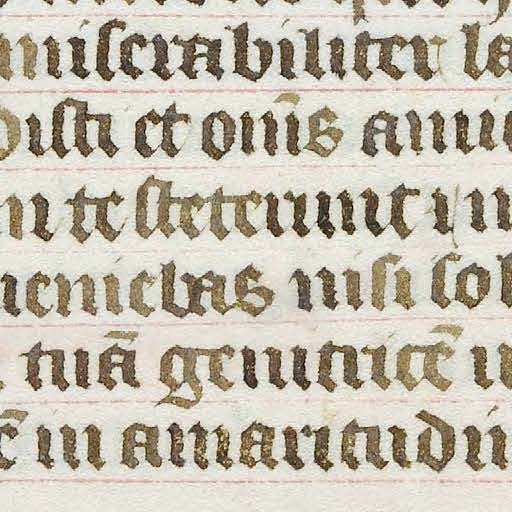 miserabiliter la
disti et om̄s ami
m te steterunt in
ueniebas nisi sol
tuā genitricē
ē in amaritudin